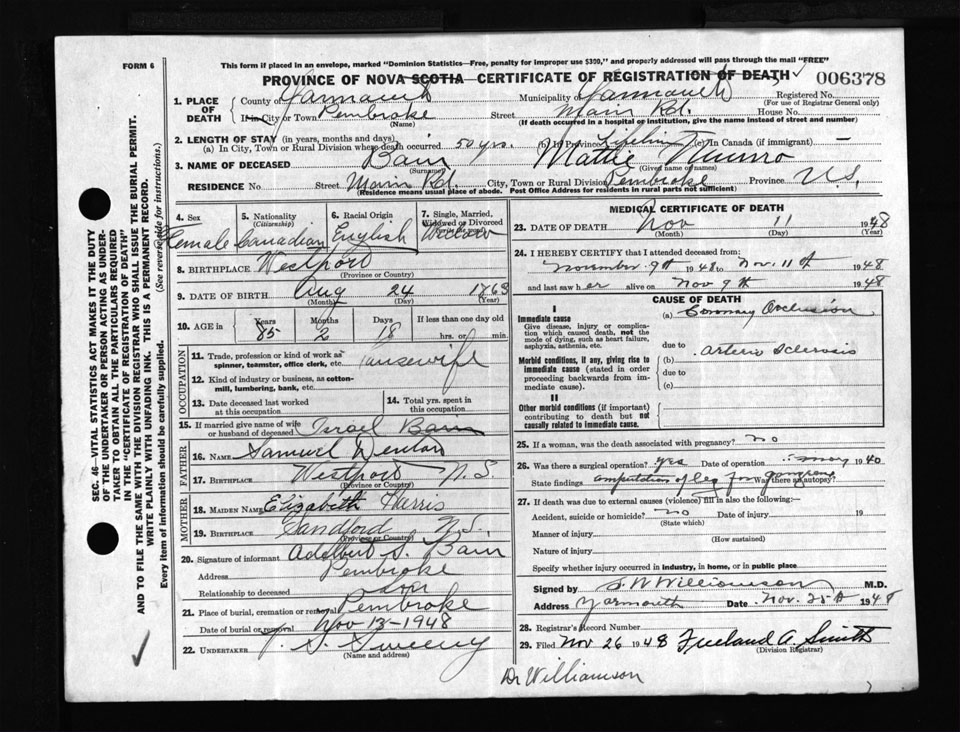 FORM 6
This form if placed in an envelope, marked "Dominion Statistics—Free, penalty for improper use $300," and properly addressed will pass through the mail "FREE"
PROVINCE OF NOVA SCOTIA—CERTIFICATE OF REGISTRATION OF DEATH 006378
1. PLACE OF DEATH County of Yarmouth Municipality of Yarmouth Registered No.
(For use of Registrar General only)
In City or Town Pembroke Street Main Rd. House No.
(Name) (If death occurred in a hospital or institution, give the name instead of street and number)
2. LENGTH OF STAY (in years, months and days)
(a) In City, Town or Rural Division where death occurred 50 yrs. (b) In Province Lifetime (c) In Canada (if immigrant)
3. NAME OF DECEASED Bain Mattie Munro
(Surname) (Given name or names)
RESIDENCE No. Street Main Rd. City, Town or Rural Division Pembroke Province N.S.
(Residence means usual place of abode. Post Office Address for residents in rural parts not sufficient)
4. Sex 5. Nationality (Citizenship) 6. Racial Origin 7. Single, Married, Widowed or Divorced
Female Canadian English Widow
8. BIRTHPLACE Westport
(Province or Country)
9. DATE OF BIRTH Aug 24 1863
(Month) (Day) (Year)
10. AGE in Years Months Days If less than one day old
85 2 18 hrs. or min.
OCCUPATION
11. Trade, profession or kind of work as spinner, teamster, office clerk, etc. Housewife
12. Kind of industry or business, as cotton-mill, lumbering, bank, etc.
13. Date deceased last worked at this occupation 14. Total yrs. spent in this occupation
15. If married give name of wife or husband of deceased Israel Bain
FATHER
16. NAME Samuel Denton
17. BIRTHPLACE Westport N.S.
(Province or Country)
MOTHER
18. MAIDEN NAME Elizabeth Harris
19. BIRTHPLACE Sandford N.S.
(Province or Country)
20. Signature of informant Adelbert S. Bain
Address Pembroke
Relationship to deceased Son
21. Place of burial, cremation or removal Pembroke
Date of burial or removal Nov 13-1948
22. UNDERTAKER V. S. Sweeny
(Name and address)
MEDICAL CERTIFICATE OF DEATH
23. DATE OF DEATH Nov 11 1948
(Month) (Day) (Year)
24. I HEREBY CERTIFY that I attended deceased from:
November 9th 1948 to Nov. 11th 1948
and last saw her alive on Nov 9th 1948
CAUSE OF DEATH
I
Immediate cause (a) Coronary Occlusion
Give disease, injury or complication which caused death, not the mode of dying, such as heart failure, asphyxia, asthenia, etc.
due to
Morbid conditions, if any, giving rise to immediate cause (stated in order proceeding backwards from immediate cause). (b) Arterio Sclerosis
due to
(c)
II
Other morbid conditions (if important) contributing to death but not causally related to immediate cause.
25. If a woman, was the death associated with pregnancy? no
26. Was there a surgical operation? yes Date of operation May 1940
State findings amputation of leg for gangrene Was there an autopsy?
27. If death was due to external causes (violence) fill in also the following:—
Accident, suicide or homicide? no Date of injury 19
(State which)
Manner of injury
(How sustained)
Nature of injury
Specify whether injury occurred in industry, in home, or in public place
Signed by S. W Williamson M.D.
Address Yarmouth Date Nov. 25th 1948
28. Registrar's Record Number
29. Filed Nov 26 1948 Freeland A. Smith
(Division Registrar)
Dr Williamson
SEC. 46—VITAL STATISTICS ACT MAKES IT THE DUTY
OF THE UNDERTAKER OR PERSON ACTING AS UNDER-
TAKER TO OBTAIN ALL THE PARTICULARS REQUIRED
IN THE "CERTIFICATE OF REGISTRATION OF DEATH"
AND TO FILE THE SAME WITH THE DIVISION REGISTRAR WHO SHALL ISSUE THE BURIAL PERMIT.
WRITE PLAINLY WITH UNFADING INK. THIS IS A PERMANENT RECORD.
Every item of information should be carefully supplied. (See reverse side for instructions.)